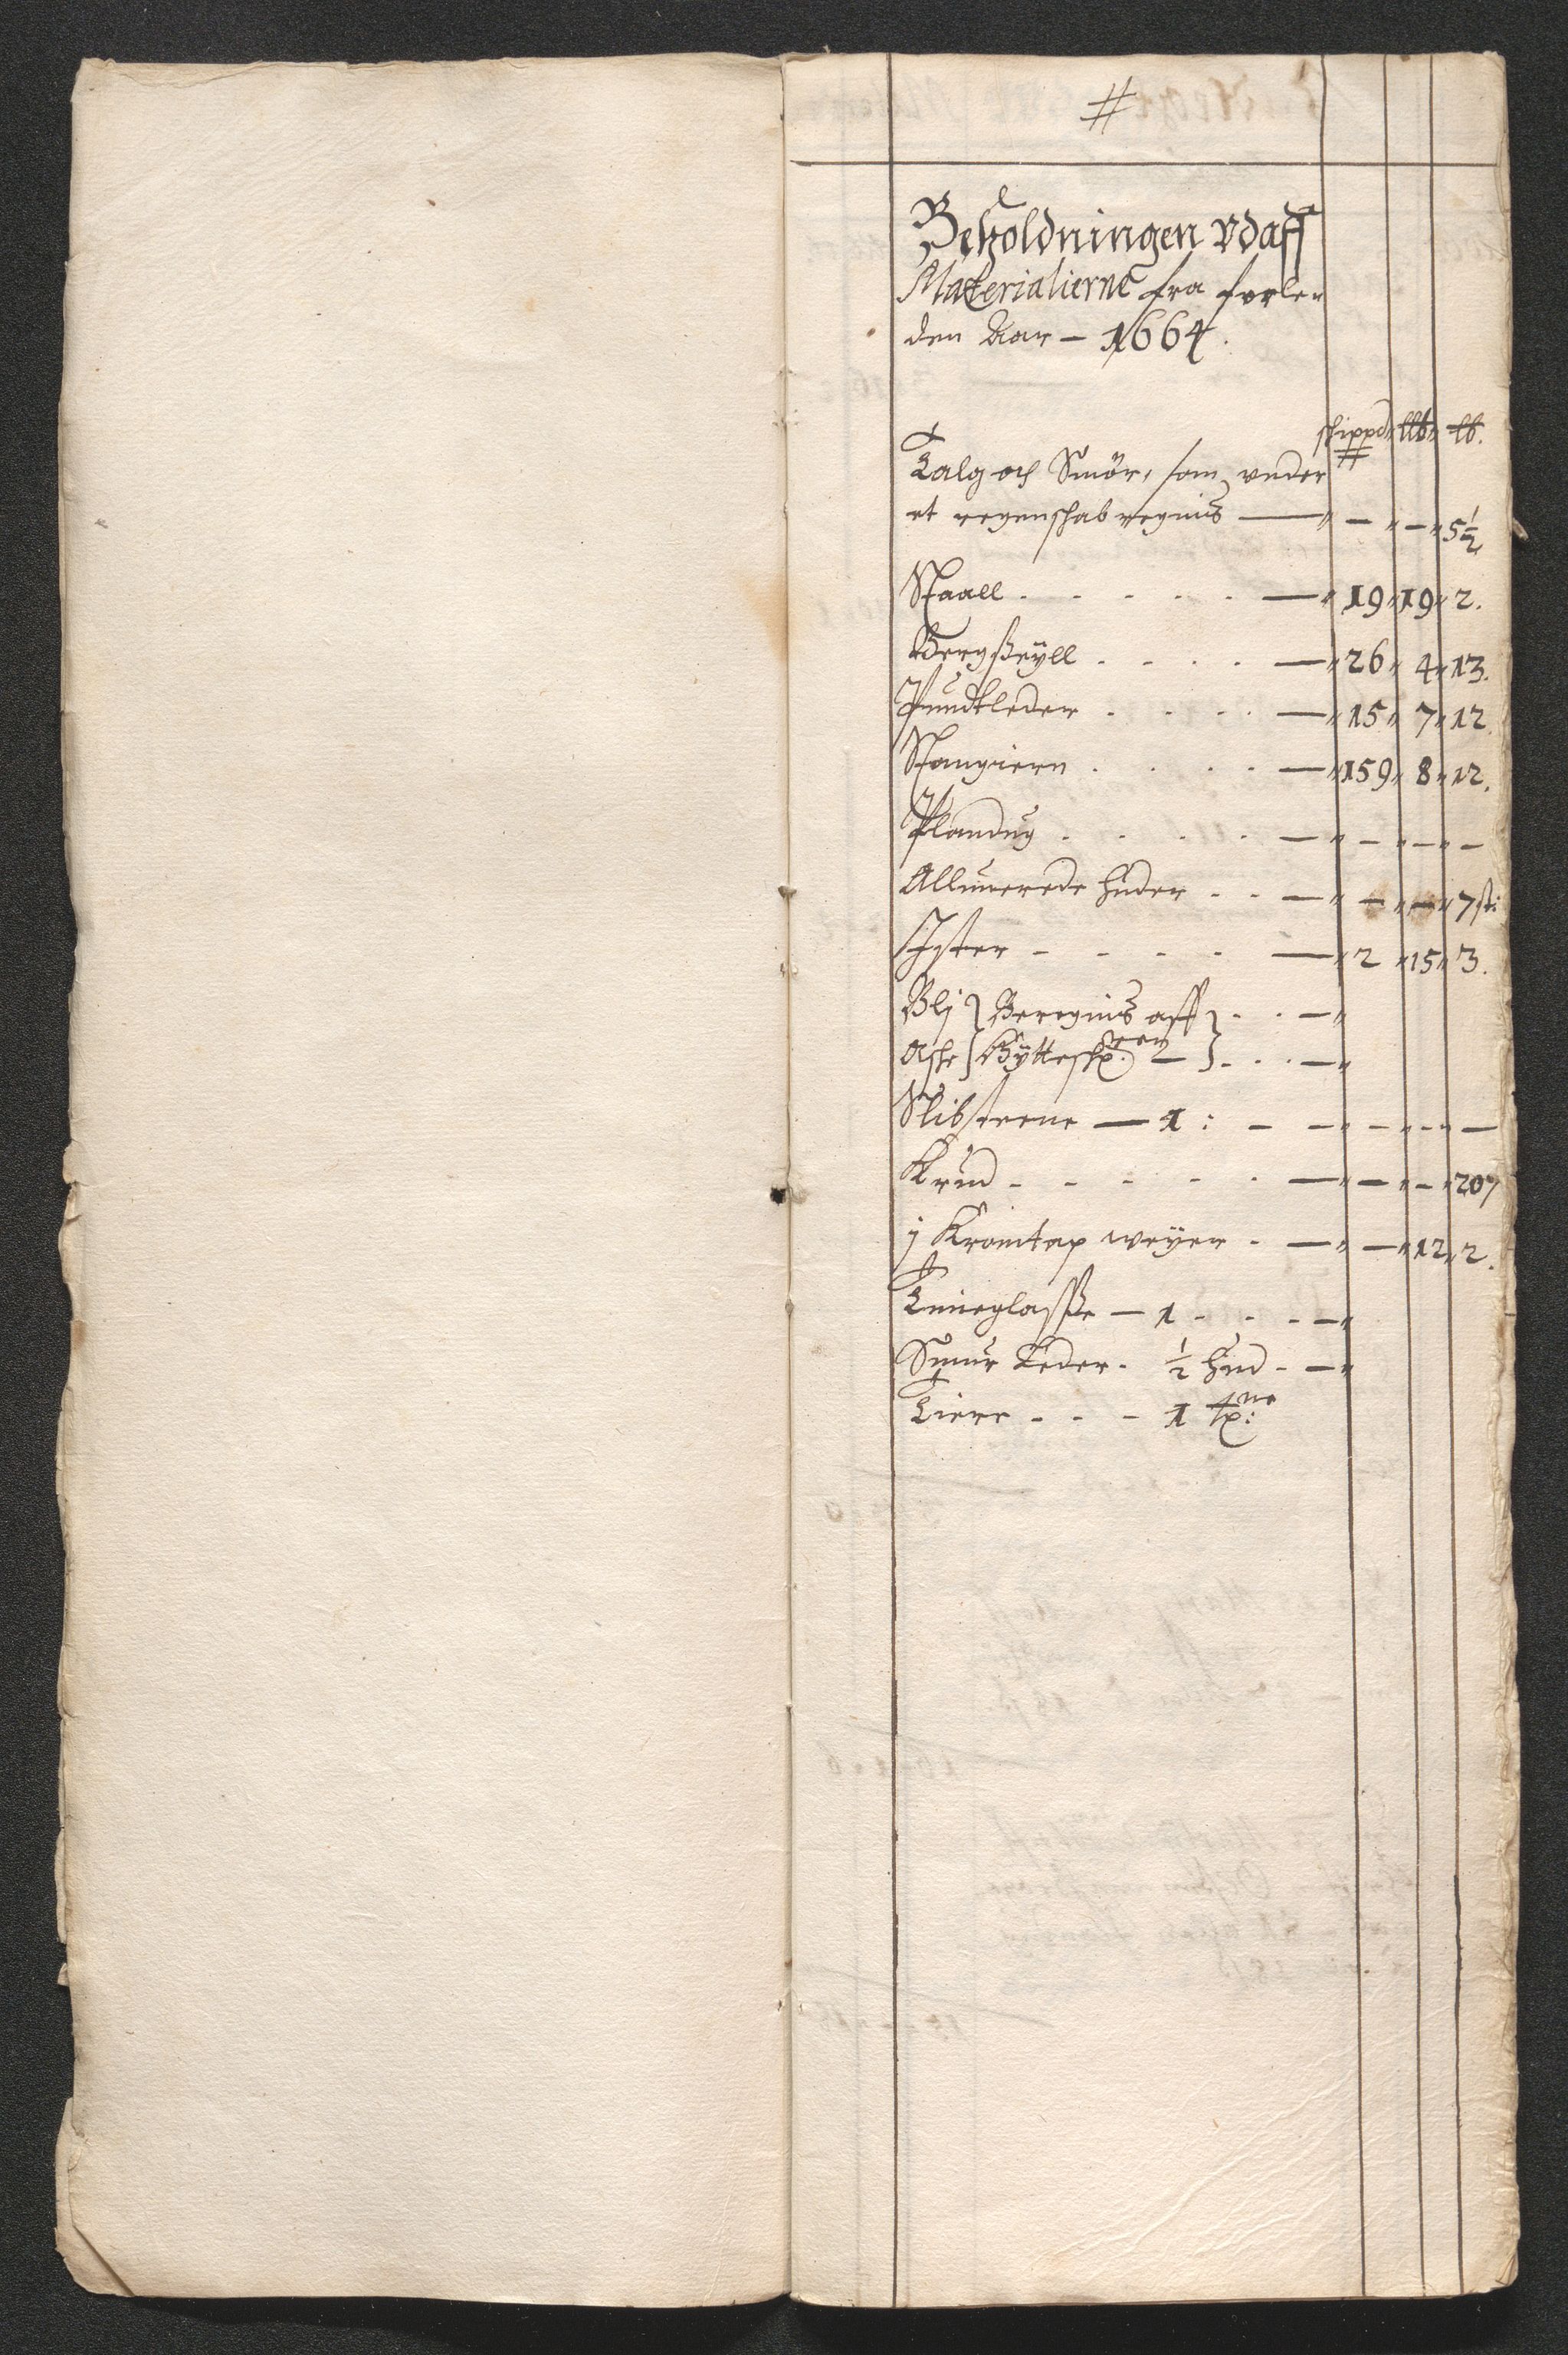 #
Beholdningen vdaff
Materialierne fra forle-
den Aar - 1664.
schippd: llb: lb.
Talg och Smör, som vnder
et regenschab regnis — - - 5½
Staall . . . . . — 19 19 2.
Bergsseÿll . . . . — 26 4 13.
Pundtleder . . . . — 15 7 12.
Stangiern . . . . — 159 8 12.
Plandug . . . . — - - -
Allunerede huder . . — - - 7 st:
Ister - - - - — 2 15 3.
Blÿ } Beregnis aff } . . —
Aske } Hÿtteschr. } . . . —
Slibsteene — 1 : - - - - -
Krud - - - - . — - - 207
j Kromtap weÿer . — - 12 2.
Timeglasse — 1 - . - -
Smur Leder . ½ hud - -
Tiere - - - 1 tne: